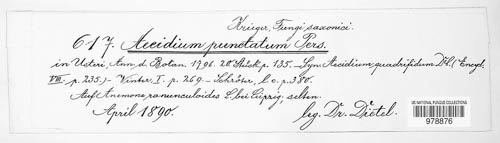 Krieger, Fungi saxonici.
617. Aecidium punctatum Pers.
in Usteri, Ann. d. Botan. 1796. 20 Stück p. 135. - Syn. Aecidium quadrifidum DC. (Encycl.
VIII. p. 235.) - Winter. I. p. 269. - Schröter, l. c. p. 380.
Auf Anemone ranunculoides L. bei Leipzig; selten.
April 1890. leg. Dr. Dietel.
US NATIONAL FUNGUS COLLECTIONS
978876